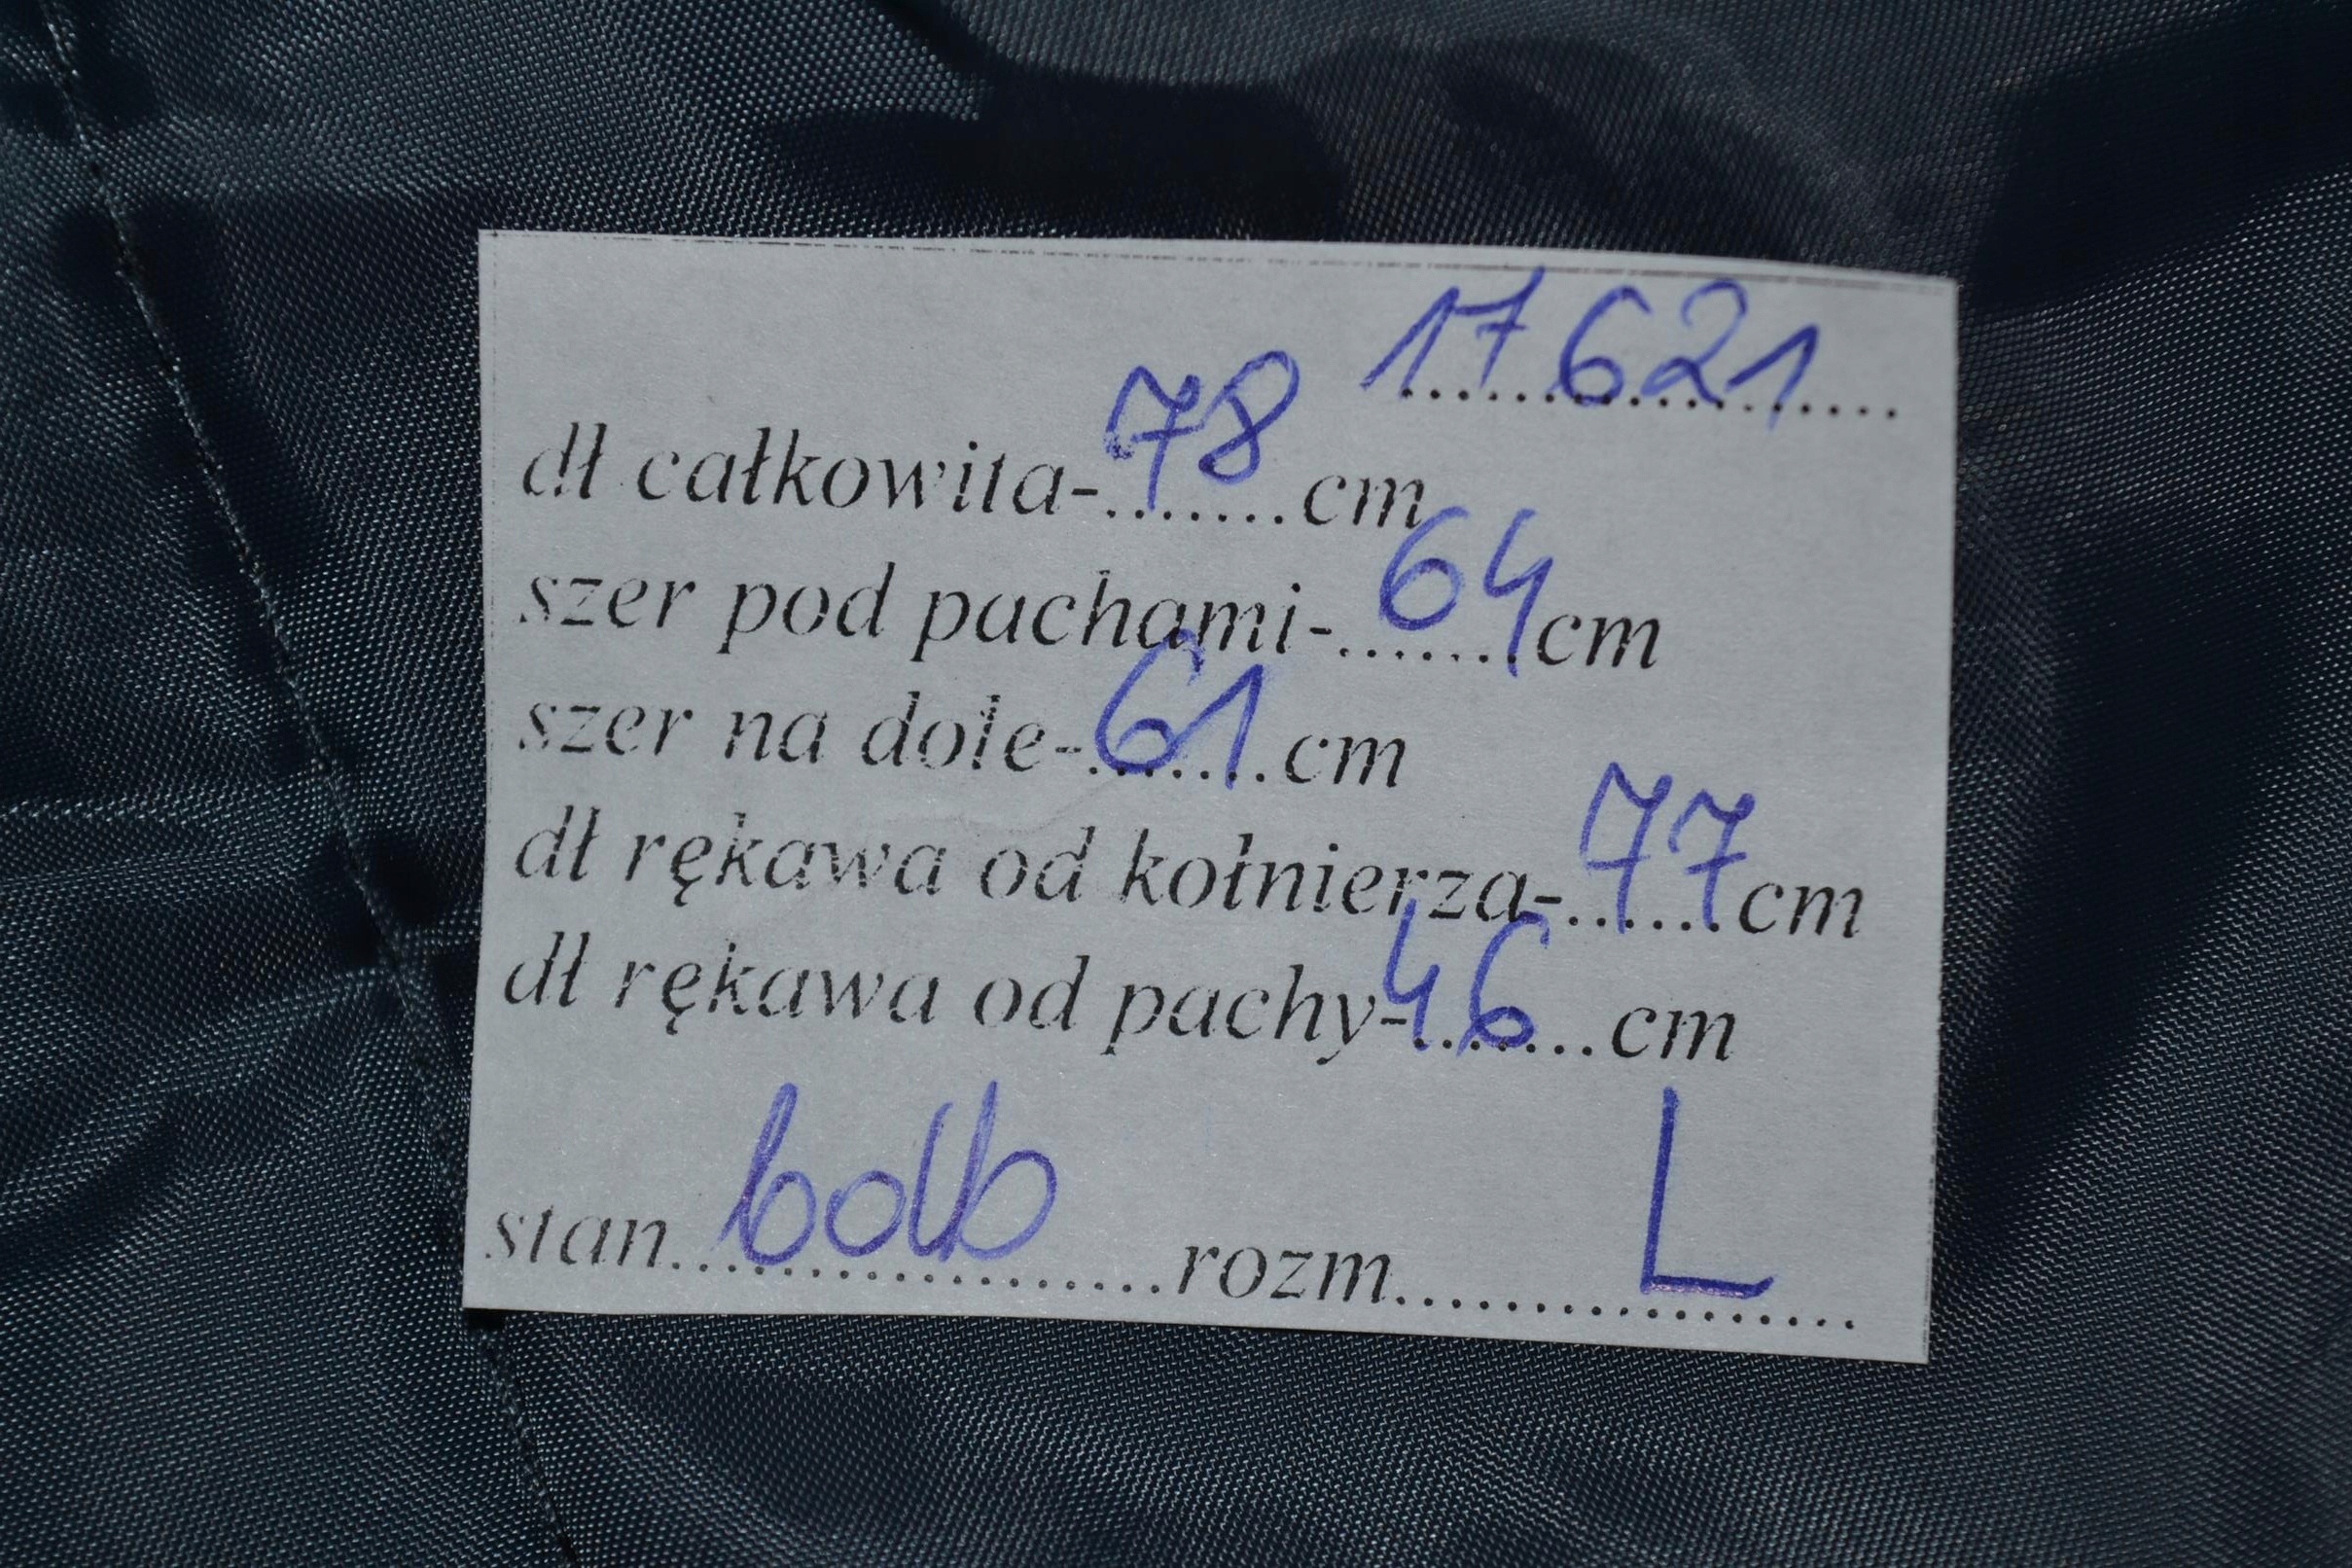 17 621
dł całkowita-78.......cm
szer pod pachami-64.......cm
szer na dole-61.......cm
dł rękawa od kołnierza-77......cm
dł rękawa od pachy-46.......cm
stan..................rozm.................L